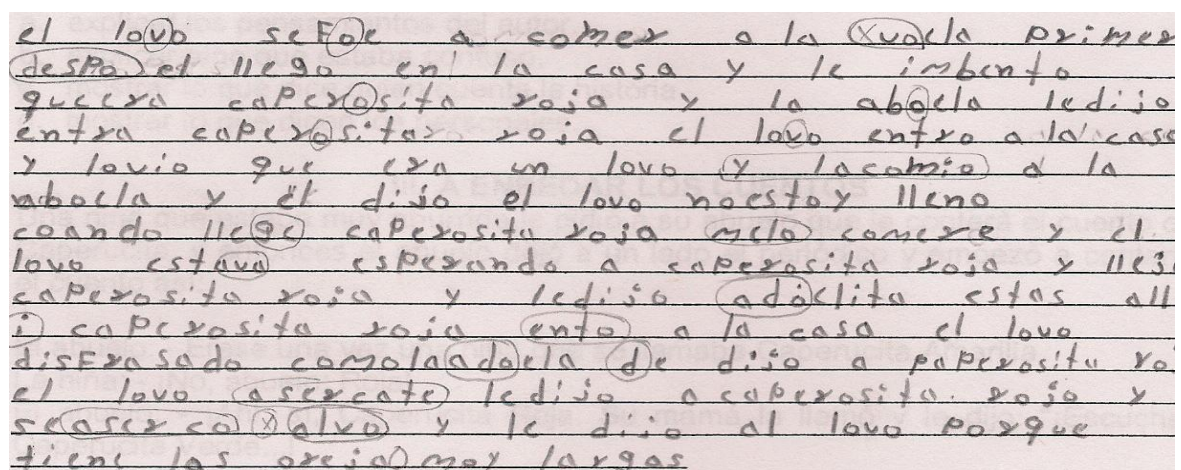 el lovo seFoe a comer a la xuaela primer
despo el llego en la casa y le imbento
queera caperosita roja y la aboela ledijo
entra caperositar roja el lovo entro a la casa
y lovio que era un lovo y lacomio a la
aboela y el dijo el lovo noestoy lleno
coando llege caperosita roja melo comere y el
lovo estava esperando a caperosita roja y lleg
caperosita roja y ledijo adoelita estas all
i caperosita roja ento a la casa el lovo
disFrasado comolaadoela de dijo a paperosita ro
el lovo asercate ledijo a caperosita roja y
seaser co x alvo y le dijo al lovo porque
tiene las orejas moy largas